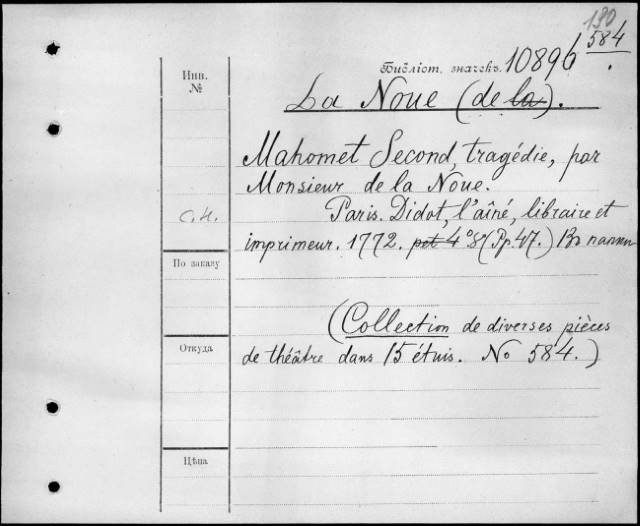 190
584
Библіот. значекъ. 10896
Инв.
№
La Noue (de la).
Mahomet Second, tragédie, par
Monsieur de la Noue.
Paris. Didot, l'aîné, libraire et
imprimeur. 1772. pet 4° 8° (Pp. 47.) Въ папкѣ
с.н.
По заказу
(Collection de diverses pièces
de théâtre dans 15 étuis. No 584.)
Откуда
Цѣна